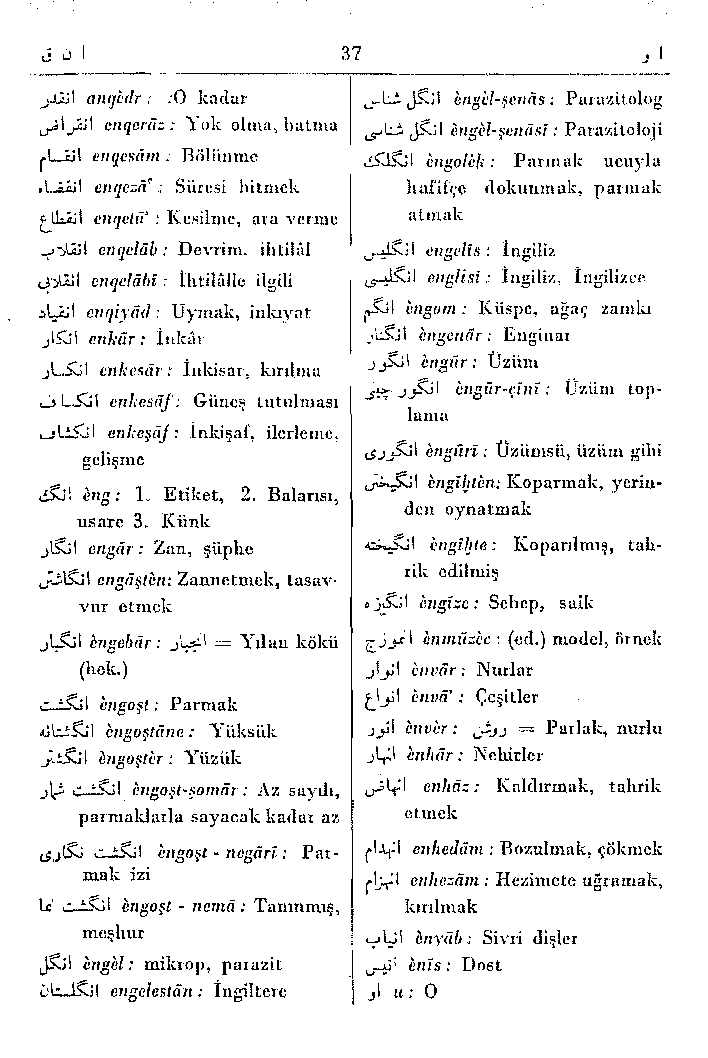 ا ن ق
37
ا و
انقدر anqèdr : :O kadar
انقراض enqerāz : Yok olma, batma
انقسام enqesām : Bölünme
انقضاء enqezā' : Süresi bitmek
انقطاع enqetā' : Kesilme, ara verme
انقلاب enqelāb : Devrim. ihtilâl
انقلابی enqelābī : İhtilâlle ilgili
انقیاد enqiyād : Uymak, inkıyat
انکار enkār : İnkâr
انکسار enkesār : İnkisar, kırılma
انکساف enkesāf : Güneş tutulması
انکشاف enkeşāf : İnkişaf, ilerleme,
gelişme
انگ èng : 1. Etiket, 2. Balarısı,
usare 3. Künk
انگار engār : Zan, şüphe
انگاشتن engāştèn: Zannetmek, tasav-
vur etmek
انگبار èngebār : انجبار = Yılan kökü
(hek.)
انگشت èngoşt : Parmak
انگشتانه èngoştāne : Yüksük
انگشتر èngoştèr : Yüzük
انگشت شمار èngoşt-şomār : Az sayılı,
parmaklarla sayacak kadar az
انگشت نگاری èngoşt - negārī : Par-
mak izi
انگشت نما èngoşt - nemā : Tanınmış,
meşhur
انگل èngèl : mikrop, parazit
انگلستان engelestān : İngiltere
انگل شناس èngèl-şenās : Parazitolog
انگل شناسی èngèl-şenāsī : Parazitoloji
انگلک èngolèk : Parmak ucuyla
hafifçe dokunmak, parmak
atmak
انگلیس engelīs : İngiliz
انگلیسی englisī : İngiliz, İngilizce
انگم èngom : Küspe, ağaç zamkı
انگنار èngenār : Enginar
انگور èngūr : Üzüm
انگور چینی èngūr-çīnī : Üzüm top-
lama
انگوری èngūrī : Üzümsü, üzüm gibi
انگیختن èngīḫtèn: Koparmak, yerin-
den oynatmak
انگیخته èngīḫte : Koparılmış, tah-
rik edilmiş
انگیزه èngīze : Sebep, saik
انموزج ènmūzèc : (ed.) model, örnek
انوار ènvār : Nurlar
انواع ènvā' : Çeşitler
انور ènvèr : روشن = Parlak, nurlu
انهار ènhār : Nehirler
انهاض enhāz : Kaldırmak, tahrik
etmek
انهدام enhedām : Bozulmak, çökmek
انهزام enhezām : Hezimete uğramak,
kırılmak
انیاب ènyāb : Sivri dişler
انیس ènīs : Dost
او u : O